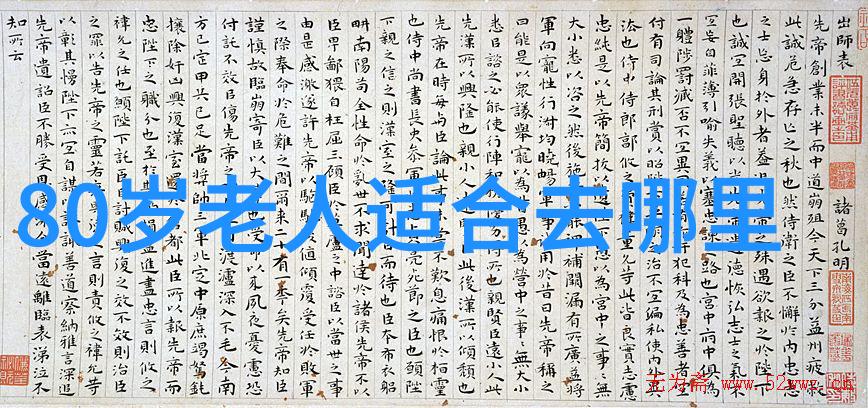 80岁老人适合去哪里
出師表 諸葛孔明
先帝創業未半而中道崩殂今天下三分益州疲敝
此誠危急存亡之秋也然侍衛之臣不懈於內忠志
之士忘身於外者蓋追先帝之殊遇欲報之於陛下
也誠宜開張聖聽以光先帝遺德恢弘志士之氣不
宜妄自菲薄引喻失義以塞忠諫之路也宮中府中俱為
一體陟罰臧否不宜異同有犯科及為忠善者宜
付有司論其刑賞以昭陛之治不宜偏私使內外異
法也侍中侍郎郭攸之禕董允等此皆良實志慮
忠純是以先帝簡拔以遺愚以為宮中之事事無
大小悉以咨之然後施裨補闕漏有所廣益將
軍向寵性行淑均曉暢軍事用於昔日先帝稱之
曰能是以眾議舉寵以為愚以為營中之事事無大小
悉臣諮之必能使行陣和優劣得所也親賢臣遠小人此
先漢所以興隆也親小人臣此後漢所以傾頹也
先帝在時每與臣論此事不歎息痛恨於桓靈
也侍中尚書長史參軍此死節之臣也
下親之信之則漢室之隆日而待也臣本布衣躬
畊南陽苟全性命於亂世不求聞達於諸侯先帝不以
臣卑鄙猥自枉屈三顧臣於廬之中諮臣以當世之事
由是感激遂許先帝以馳驅值傾覆受任於敗軍
之際奉命於危難之間爾來二有一年矣先帝知臣
謹慎故臨崩寄臣以大也受命以來夙夜憂慮恐
付託不效以傷先帝之渡瀘深入不毛今南
方已定甲兵已足當獎帥三軍北定中原庶竭駑鈍
攘除奸凶興復漢室還都此臣所以報先帝而
忠陛下之職分也至於損益進盡忠言則攸之
禕允之任也願陛下託臣討賊興復之效不效則治臣
之罪以告先帝之靈若無興之言則責攸之禕允等
以彰其慢陛下亦宜自謀以諏善道察納雅言深追
先帝遺詔臣不勝受恩當遠離臨表涕泣不
知所云